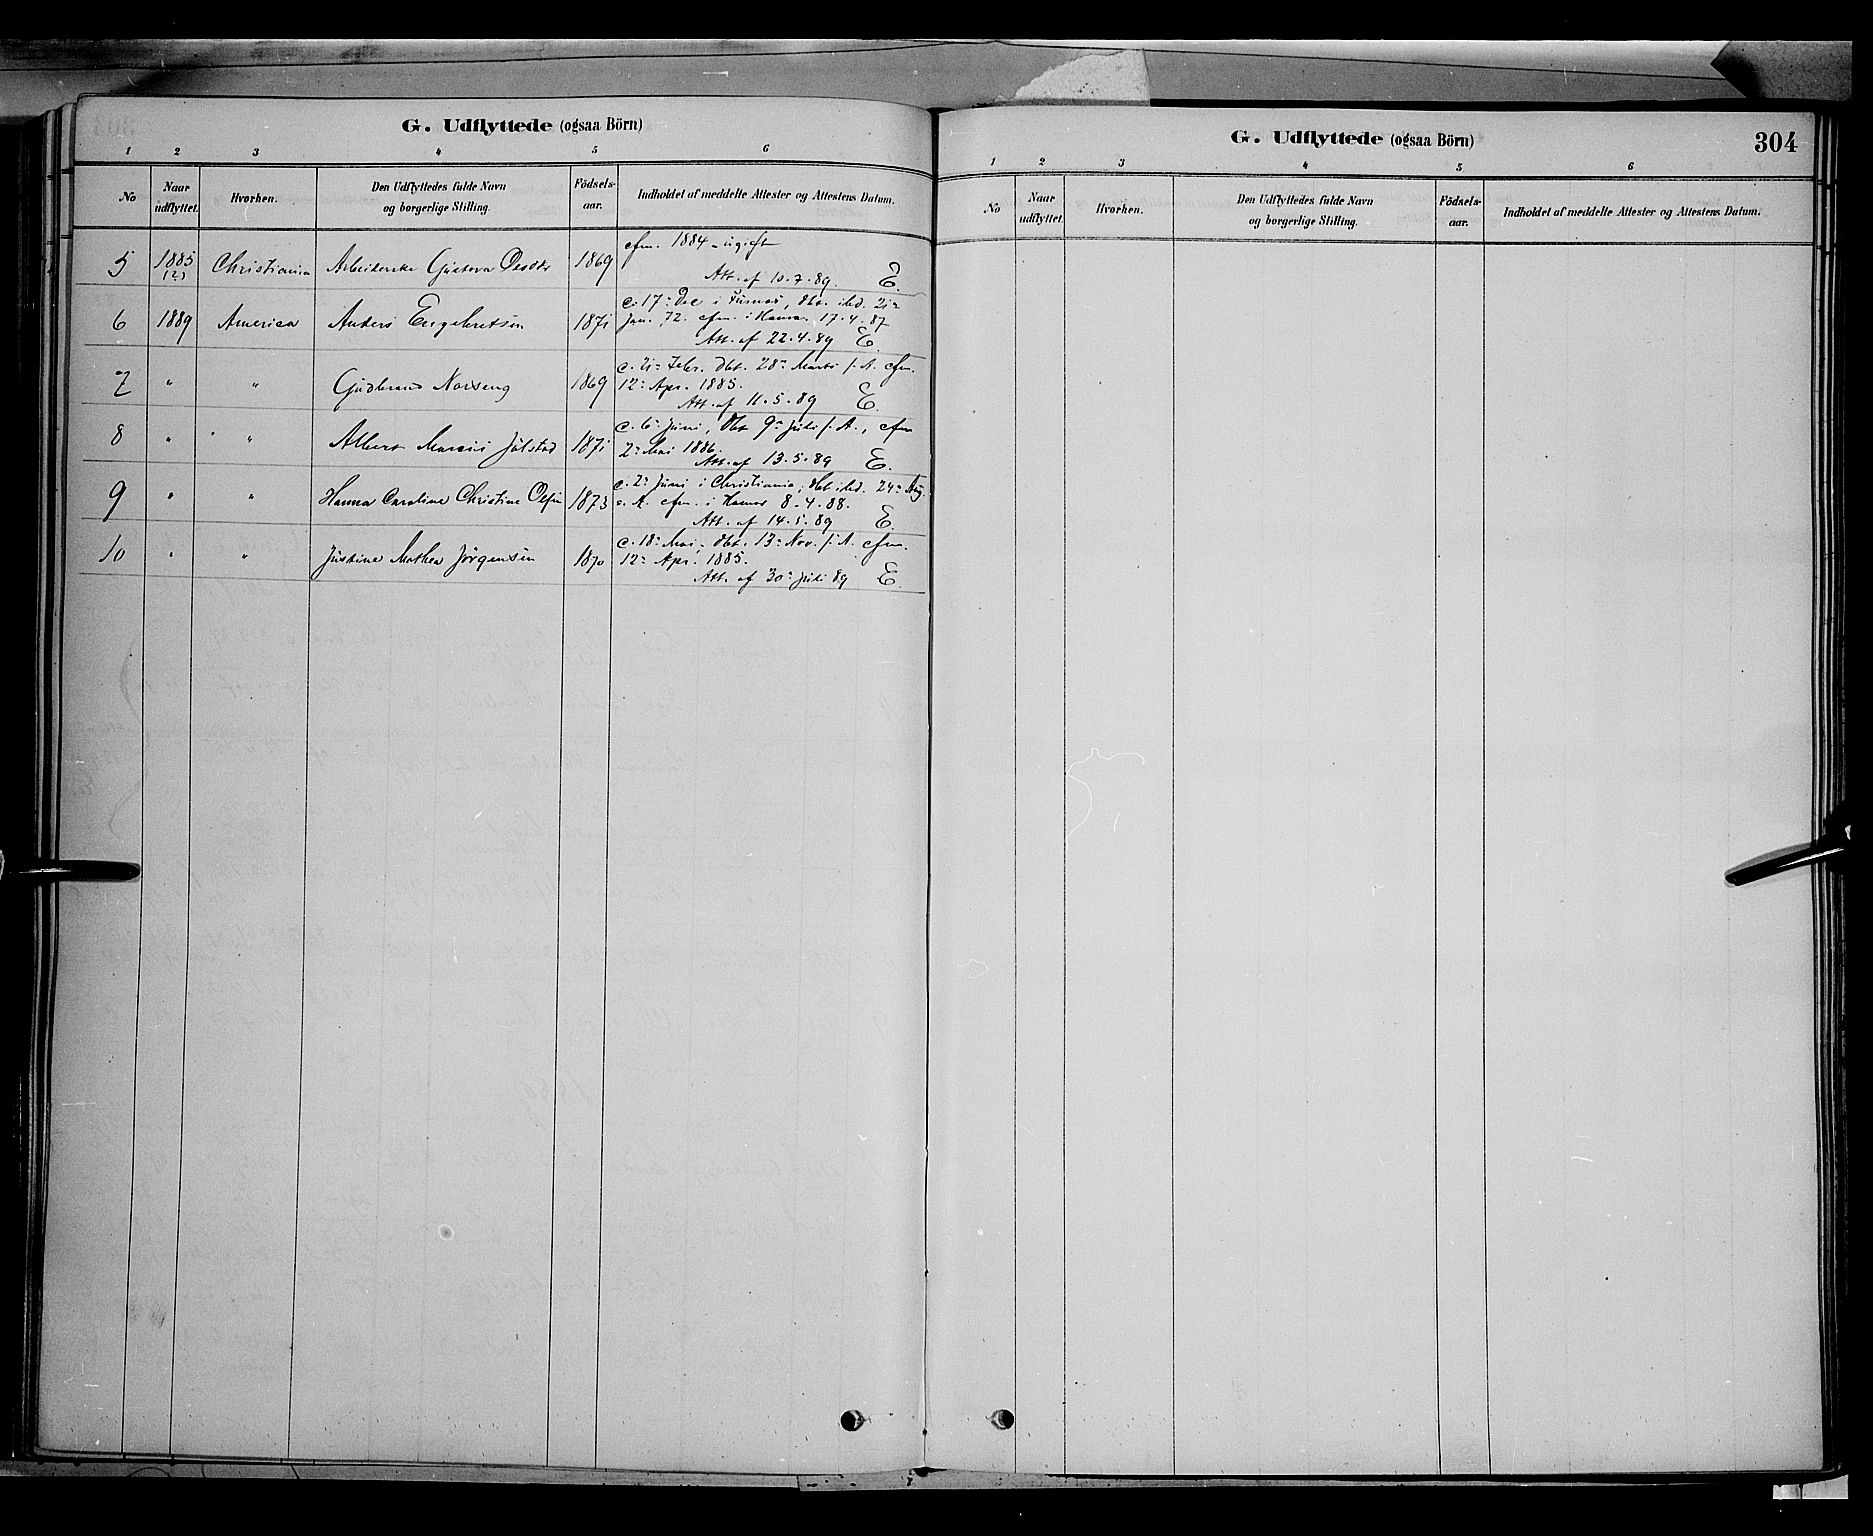 G. Udflyttede (ogsaa Börn)
1 2 3 4 5 6
No Naar udflyttet. Hvorhen. Den Udflyttedes fulde Navn og borgerlige Stilling. Födsels-aar. Indholdet af meddelte Attester og Attestens Datum.
5 1885 (?) Christiania Arbeiderske Gustava 1869 cfm. 1884 - ugift
Att. af 10.7.89. E.
6 1889 America Anders Engebretsen 1871 c. 17de Dec i Furnes, dbt. ibd. 21de
Jan. 72. cfm. i Hamar 17.4.87
Att. af 22.4.89 E.
7 " " Gudbrand Norseng 1869 c. 21de Febr. dbt. 28de Marts s. A. cfm.
12te Apr. 1885.
Att. af 11.5.89 E.
8 " " Albert Marius Julstad 1871 c. 6te Juni, dbt 9de Juli s. A., cfm
2den Mai 1886.
Att. af 13.5.89 E.
9 " " Hanna Caroline Christine Olsen 1873 c. 2den Juni i Christiania, dbt ibd. 24de Aug.
s. A. cfm. i Hamar 8.4.88.
Att. af 14.5.89 E.
10 " " Justine Mathea Jörgensen 1870 c. 18de Mai, dbt. 13de Nov. s. A. cfm.
12te Apr. 1885.
Att. af 30te Juli 89 E.
G. Udflyttede (ogsaa Börn) 304
1 2 3 4 5 6
No Naar udflyttet. Hvorhen. Den Udflyttedes fulde Navn og borgerlige Stilling. Födsels-aar. Indholdet af meddelte Attester og Attestens Datum.